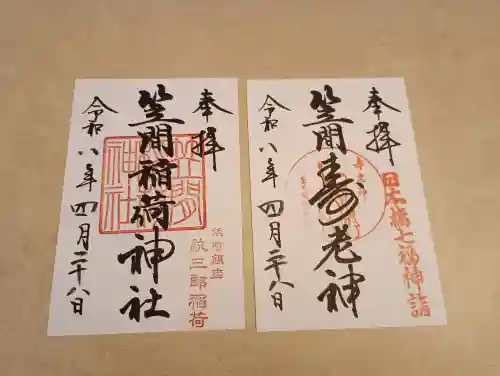 奉拝
笠間稲荷神社
令和八年四月二十八日
笠間
神社
浜町鎮座
紋三郎稲荷
奉拝
笠間寿老神
令和八年四月二十八日
日本橋七福神詣